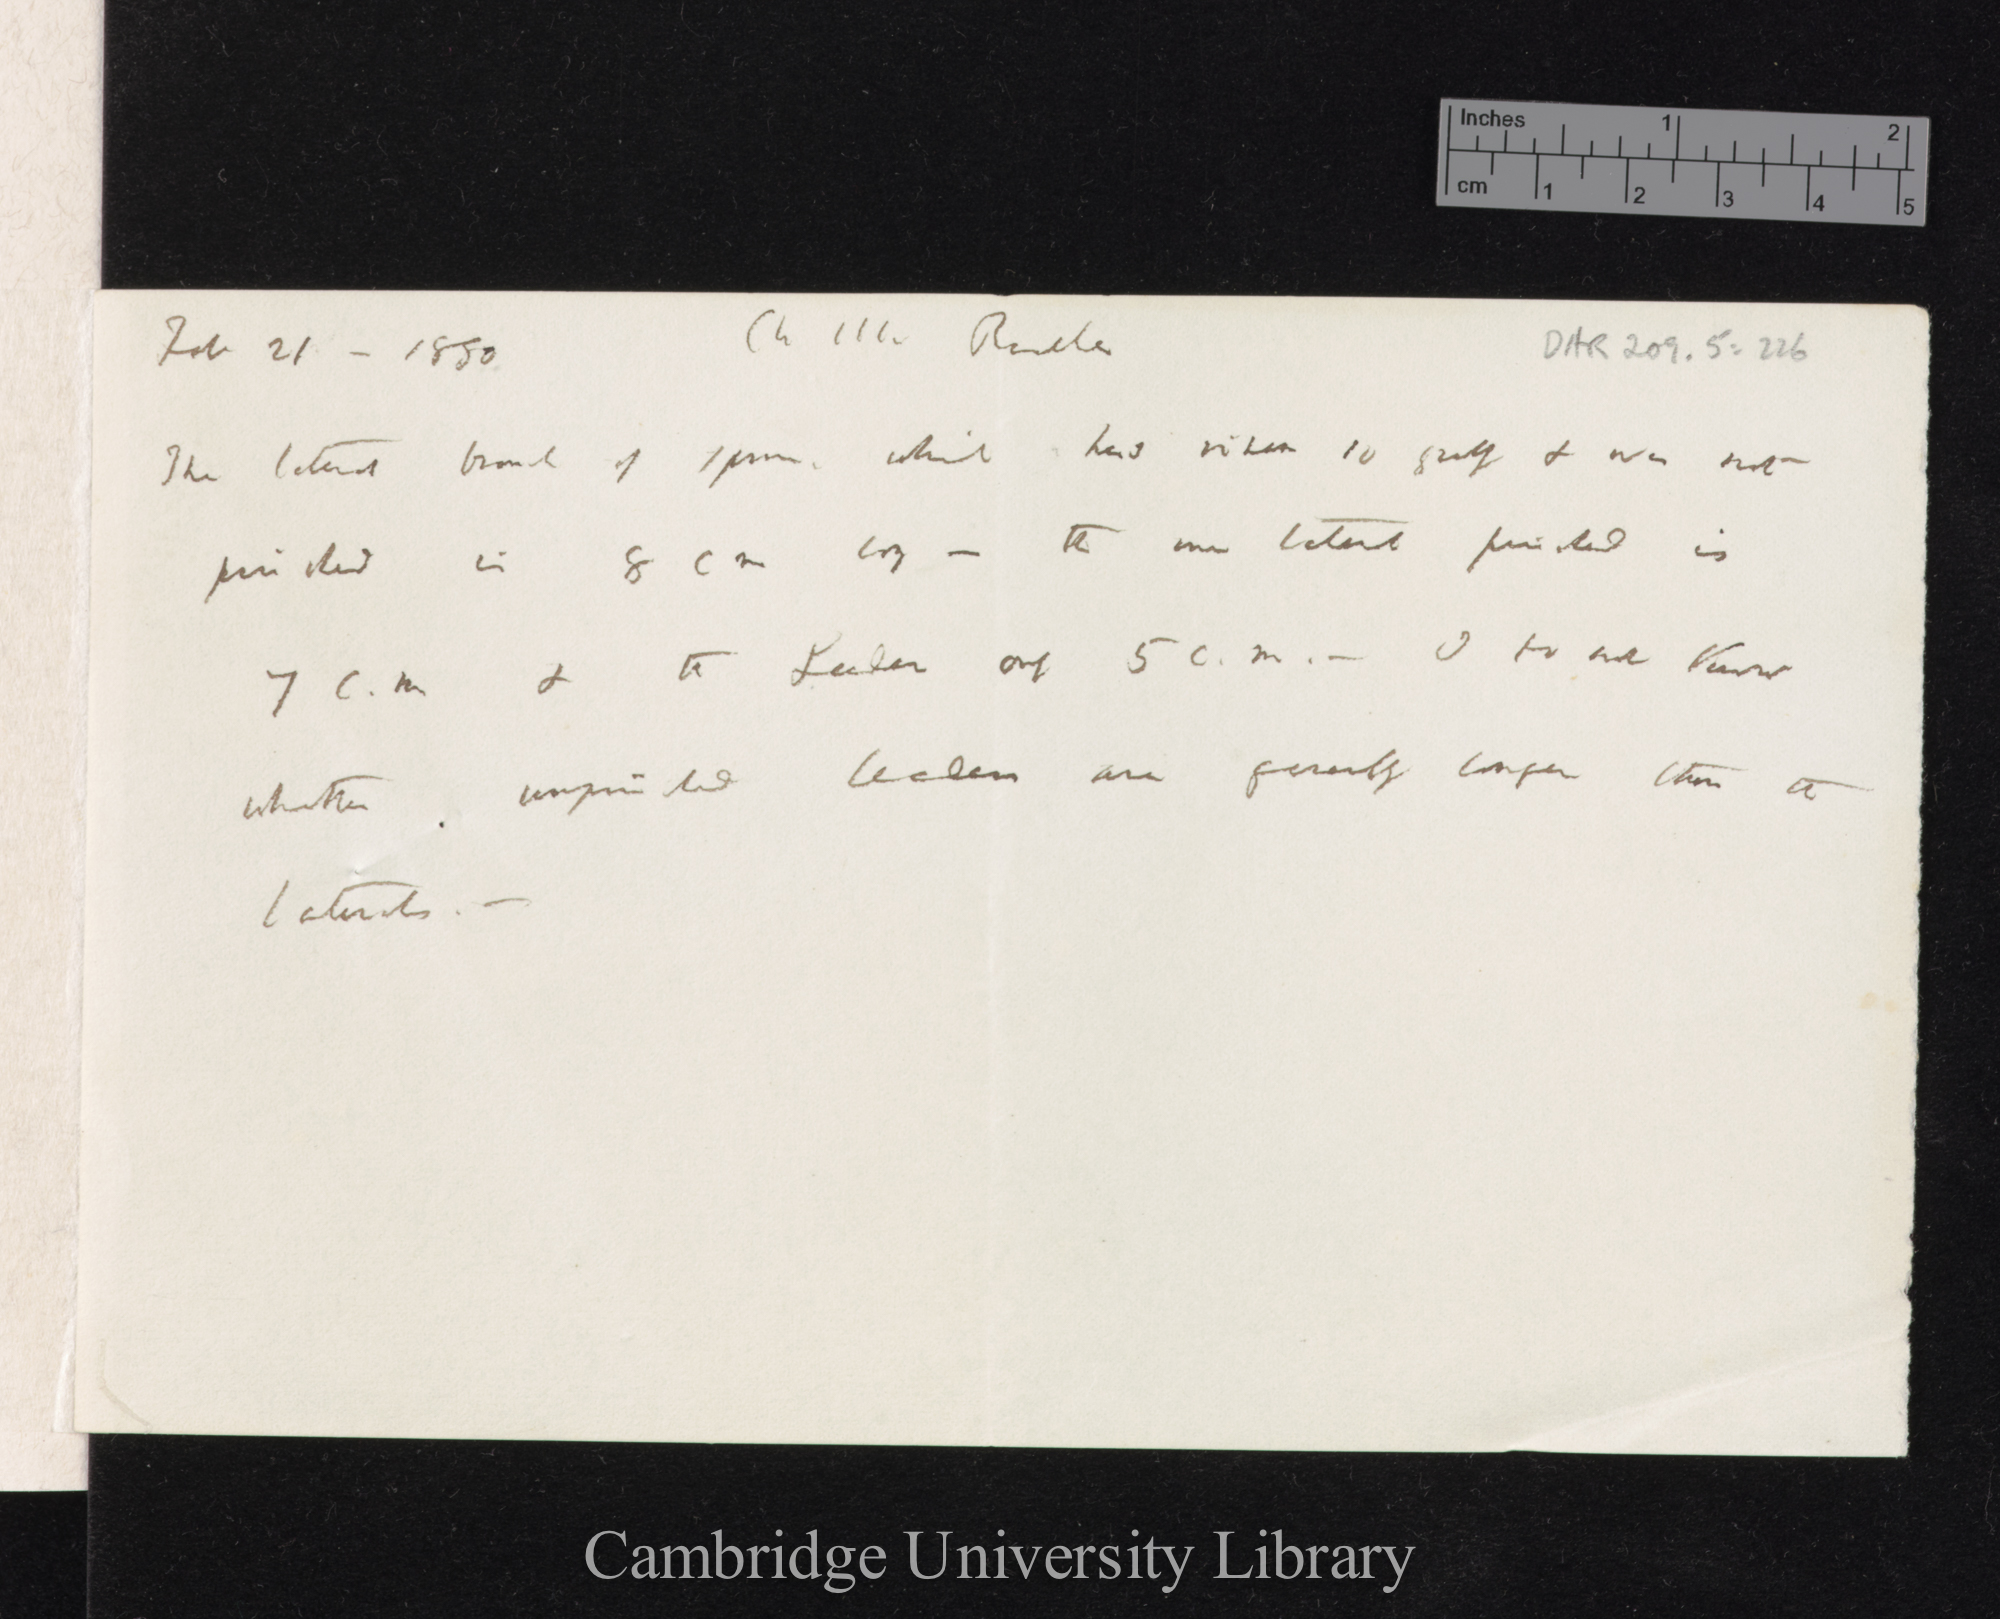 Inches 1 2
cm 1 2 3 4 5
Feb 21 — 1880 Ch III. DAR 209.5:226
The lateral branch of spruce. which has risen so greatly & was not
pricked is 8 cm long — the one lateral pricked is
7 c.m & the Leader only 5 c.m. — I do not know
whether unpricked leaders are generally longer than the
laterals. —
Cambridge University Library